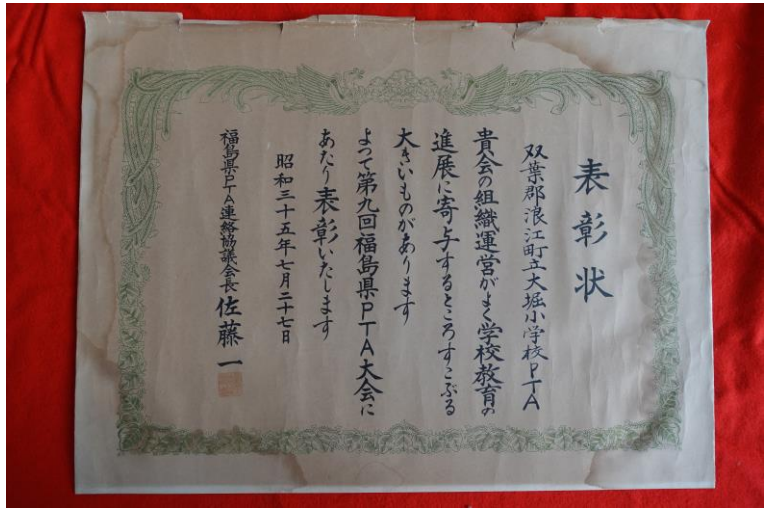 表彰状
双葉郡浪江町立大堀小学校PTA
貴会の組織運営がよく学校教育の
進展に寄与するところすこぶる
大きいものがあります
よつて第九回福島県PTA大会に
あたり表彰いたします
昭和三十五年七月二十七日
福島県PTA連絡協議会長 佐藤一